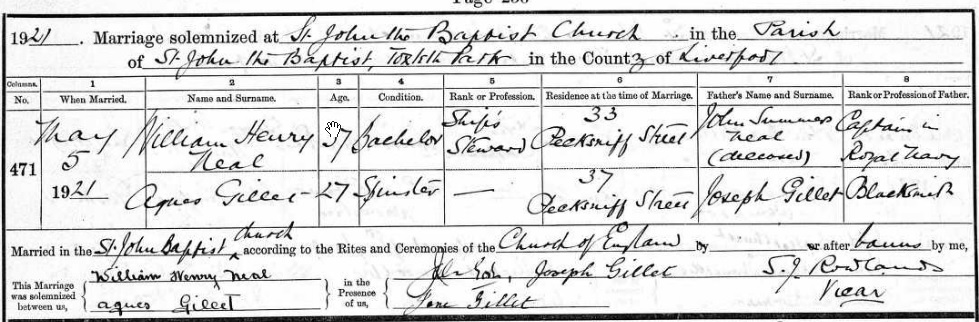 Page
1921. Marriage solemnized at St. John the Baptist Church in the Parish
of St John the Baptist, Toxteth Park in the County of Liverpool
Columns. 1 2 3 4 5 6 7 8
No. When Married. Name and Surname. Age. Condition. Rank or Profession. Residence at the time of Marriage. Father's Name and Surname. Rank or Profession of Father.
471
May 5 1921
William Henry Neal 37 Bachelor Ship's Steward 33 Pecksniff Street John Summers Neal (deceased) Captain in Royal Navy
Agnes Gillet 27 Spinster — 37 Pecksniff Street Joseph Gillet Blacksmith
Married in the St. John Baptist church according to the Rites and Ceremonies of the Church of England by or after banns by me,
This Marriage was solemnized between us,
William Henry Neal
Agnes Gillet
in the Presence of us,
Joseph Gillet
Jane Gillet
S. J. Rowlands
Vicar